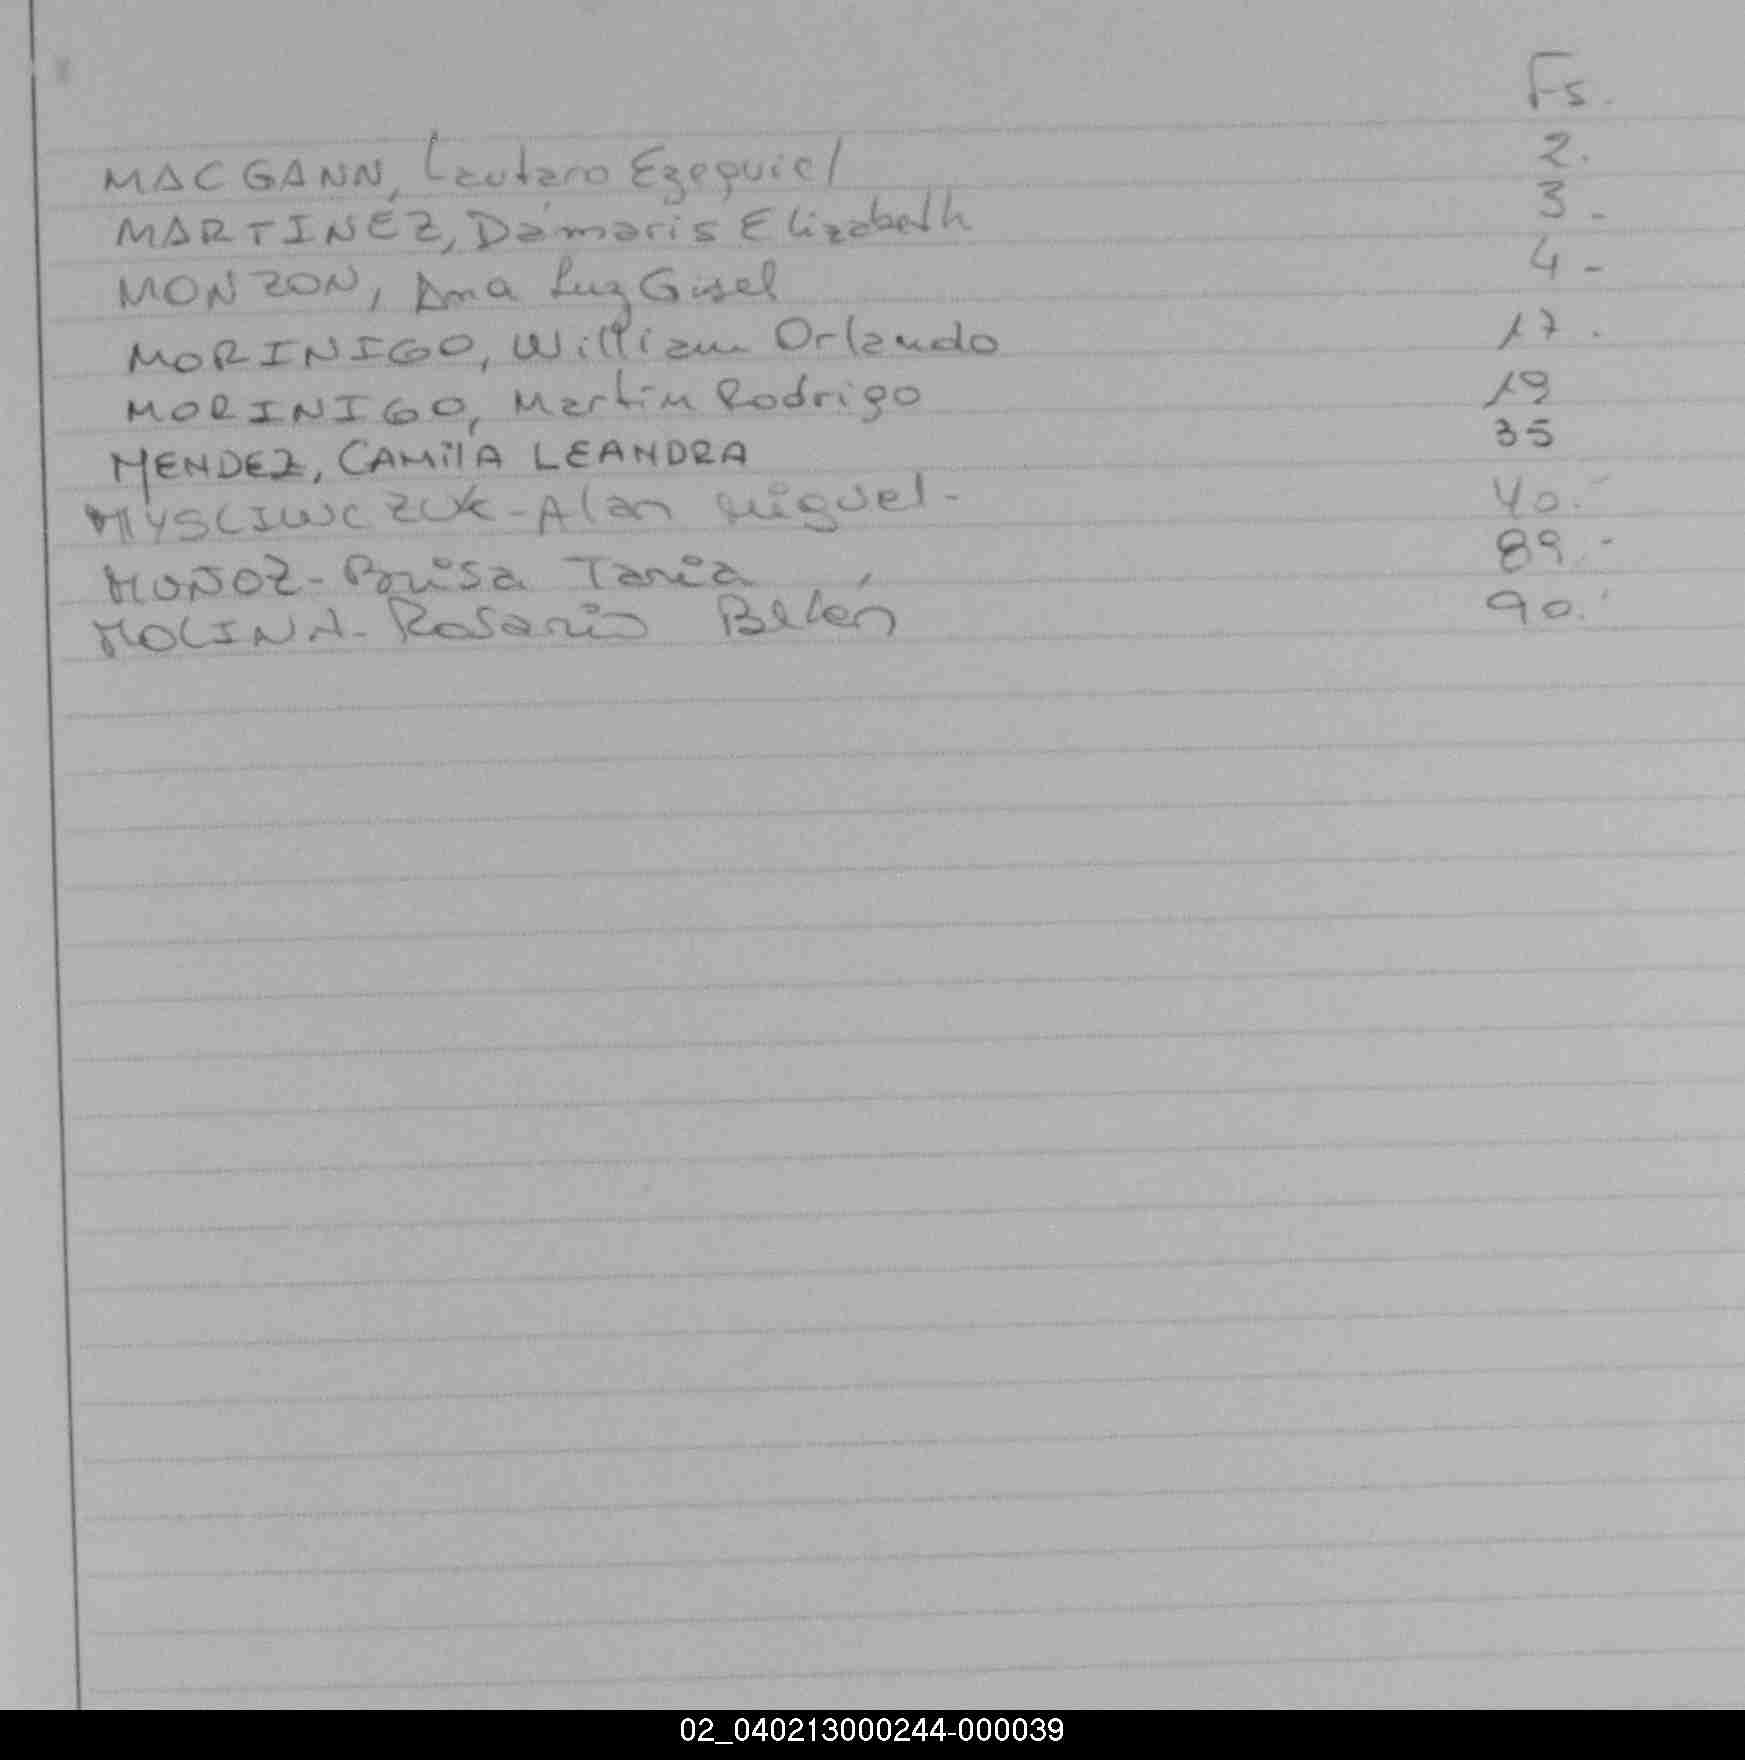 Fs.
MACGANN, Lautaro Ezequiel 2.
MARTINEZ, Dámaris Elizabeth 3-
MONZON, Ana Luz Gisel 4-
MORINIGO, William Orlando 17.
MORINIGO, Martin Rodrigo 19
MENDEZ, CAMILA LEANDRA 35
MYSCIWCZUK-Alan Miguel- 40.-
MUÑOZ-Brisa Tania 89.-
MOLINA-Rosario Belén 90.
02_040213000244-000039